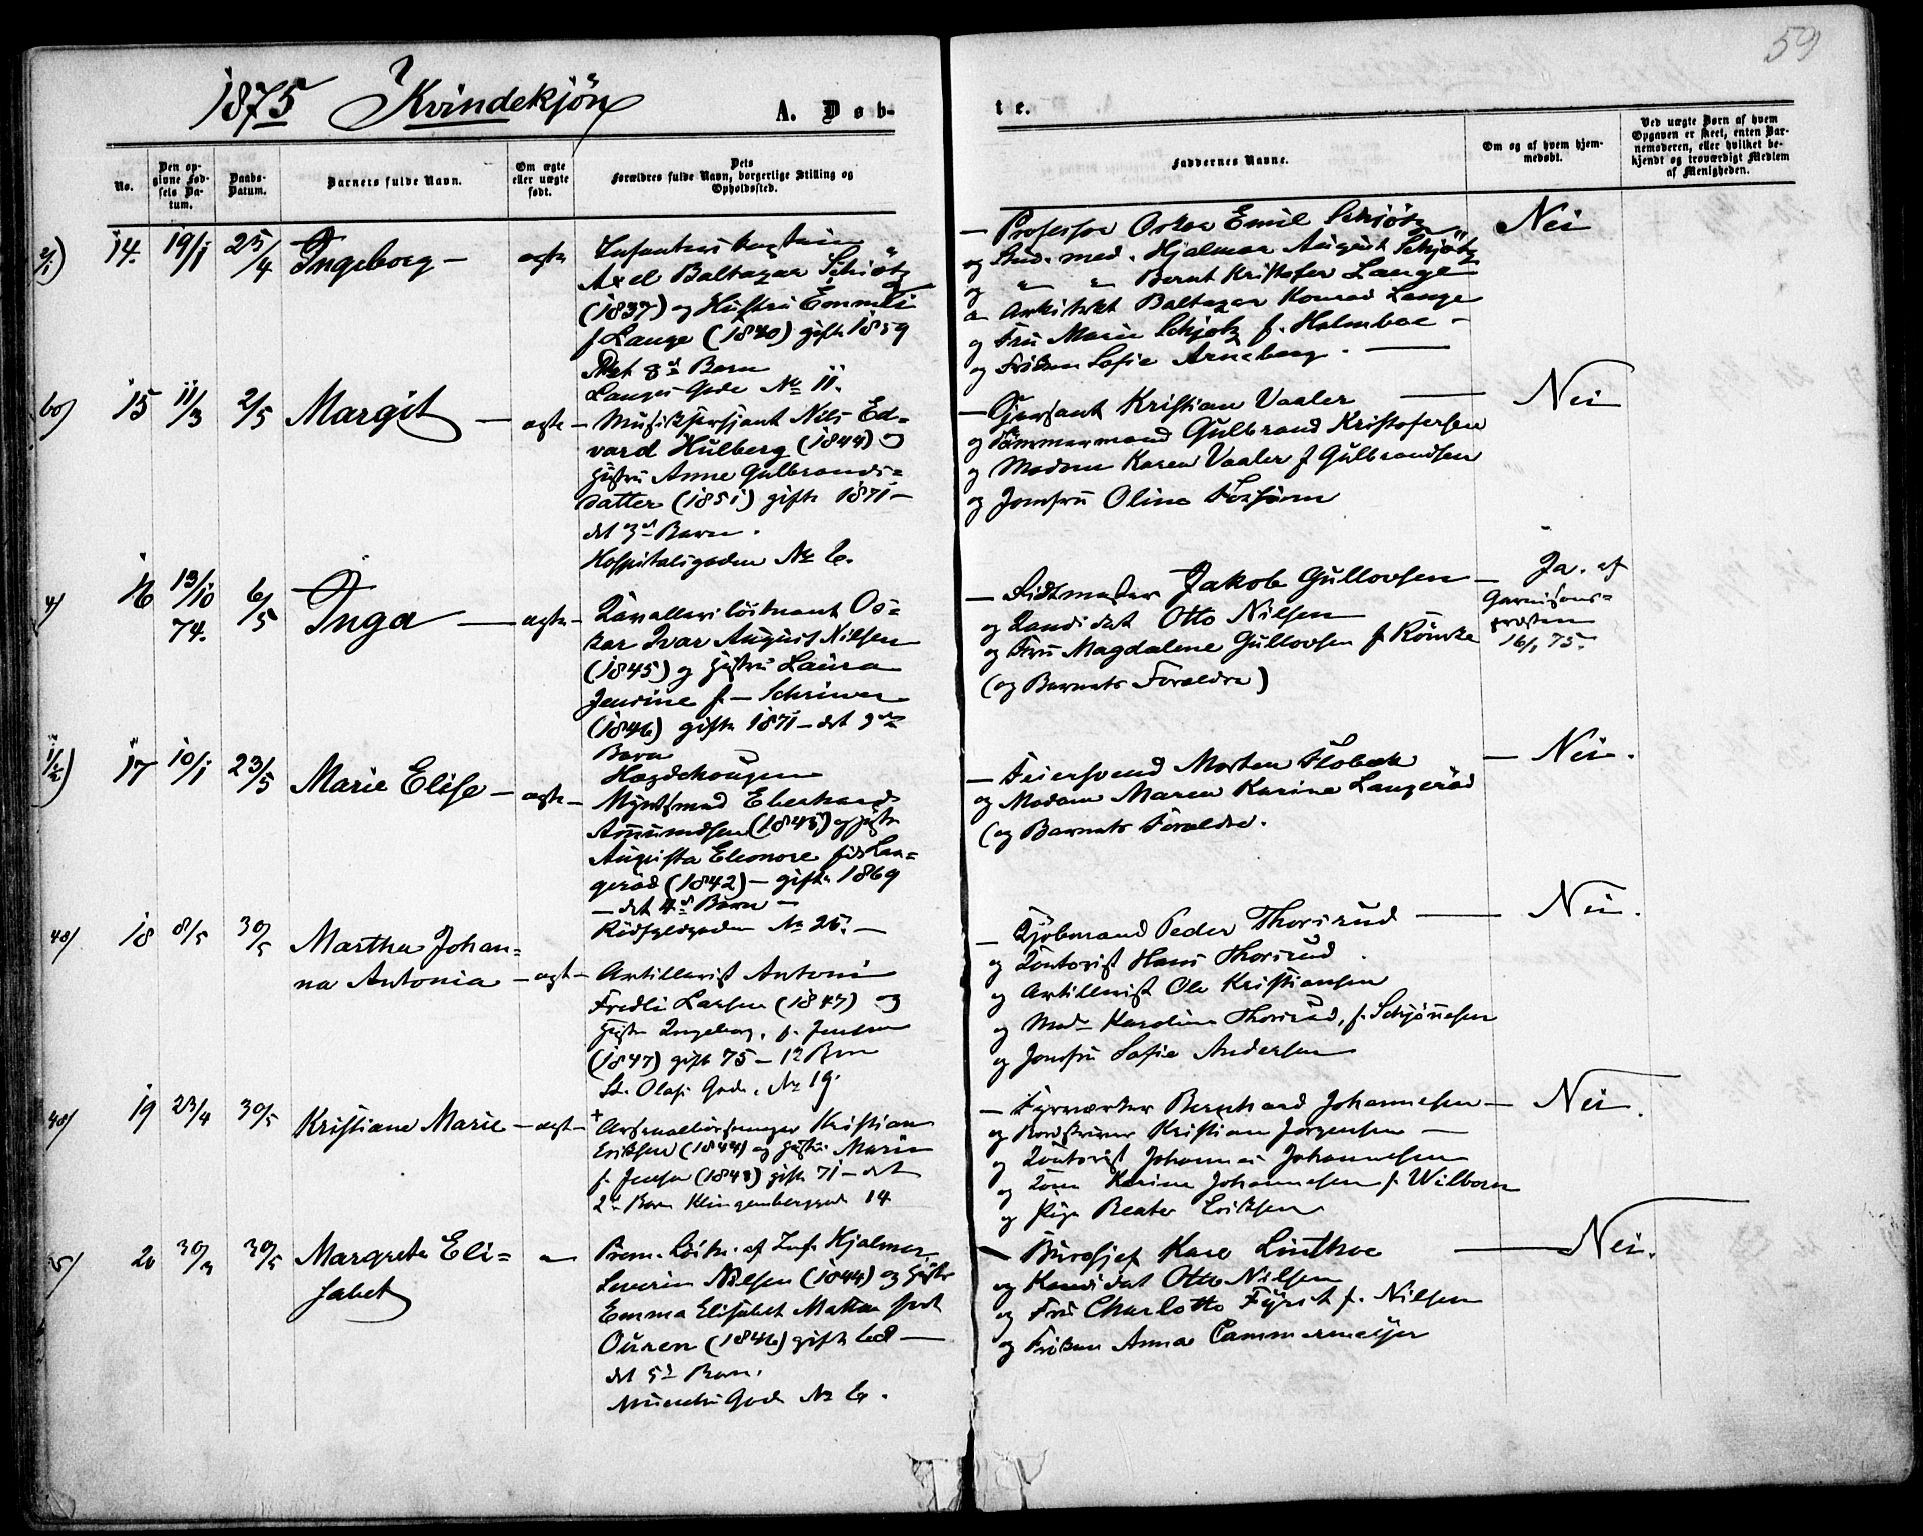 59
1875 Kvindekjön
A. Døb-
te.
No.
Den op-
givne Fød-
sels Da-
tum.
Daabs-
Datum.
Barnets fulde Navn.
Om ægte
eller uægte
født.
Dets
Forældres fulde Navn, borgerlige Stilling og
Opholdssted.
Faddernes Navne.
Om og af hvem hjem-
medøbt.
Ved uægte Børn af hvem
Opgaven er skeet, enten Bar-
nemoderen, eller hvilket be-
kjendt og troværdigt Medlem
af Menigheden.
14. 19/1 25/4 Ingeborg — ægte
Infanterikaptein
Axel Baltazar Schiötz
(1837) og Hustru Emmeli
f. Lange (1840) gifte 1859
Det 8de Barn
Langes Gade No 11.
— Professor Oskar Emil Schjötz
og Stud. med. Hjalmar August Schjötz
og " " Bernt Kristofer Lange
og Arkitekt Baltazar Konrad Lange
og Fru Marie Schjøtz f. Holmboe —
og Frøken Sofie Arneberg. —
Nei
15 11/3 2/5 Margit — ægte —
Musiksersjant Nils Ed-
vard Hulberg (1844) og
Hustru Anne Gulbrands-
datter (1851) gifte 1871 —
det 3de Barn.
Hospitalsgaden No 6.
— Sersjant Kristian Vaaler
og Tømmermand Gulbrand Kristofersen
og Madam Karen Vaaler f. Gulbrandsen
og Jomfru Oline
Nei
4) 16 13/10 74. 6/5 Inga — ægte —
Kavallerilöitnant Os-
kar Ivar August Nilsen
(1845) og Hustru Laura
Jensine f. — Schriwer
(1846) gifte 1871 — det 3die
Barn
Hægdehougen
— Ridtmester Jakob Gullovsen —
og Kandidat Otto Nilsen
og Fru Magdalene Gullovsen f.
(og Barnets Forældre)
Ja. af
Garnisons-
præsten
16/1 75.
17 10/1 23/5 Marie Elise — ægte —
Myntsmed Eberhard
Amundsen (1845) og Hustru
Augusta Eleonore født Lan-
gerød (1842) — gifte 1869
— det 4de Barn —
Rådfyldgaden No 25. —
— Feiersvend Morten Flobæk
og Madam Maren Karine Langerød
(og Barnets Forældre.
— Nei.
18 8/5 30/5 Martha Johan-
na Antonia — ægt —
Artillerist Antoni
Fredli Larsen (1847) og
Hustru Ingeborg, f. Jensen
(1847) gift 75 — 1te Barn
St. Olafs Gade. No 19.
— Kjøbmand Peder Thorsrud —
og Kontorist Hans Thorsrud
og Artillerist Ole Kristiansen
og Mad. Karoline Thorsrud, f.
og Jomfru Sofie Andersen
Nei.
19 23/4 30/5 Kristiane Marie — ægt —
Arsenalbörsemager Kristian
Eriksen (1844) og Hustru Marie
f. Jensen (1848) gifte 71 — det
2det Barn Klingenberggad 14
— Fyrværker Bernhard Johannesen —
og Kristian Jørgensen —
og Kontorist Johannes Johannesen
og Kone Karine Johannesen f. Wilborn
og Pige Beate Eriksen
Nei.
5) 20 30/3 30/5 Margrete Eli-
sabet —
Prem. Löitn. af Inf. Hjalmar
Severin Nilsen (1844) og Hustru
Emma Elisabet Mathea født
Ouren (1846) gifte 68 —
det 5te Barn.
Munchs Gade No 6.
— Büroschef Kare Linthoe
og Kandidat Otto Nilsen
og Fru Charlotte Fyrst f. Nilsen
og Frøken Anna Cammermeijer
Nei.